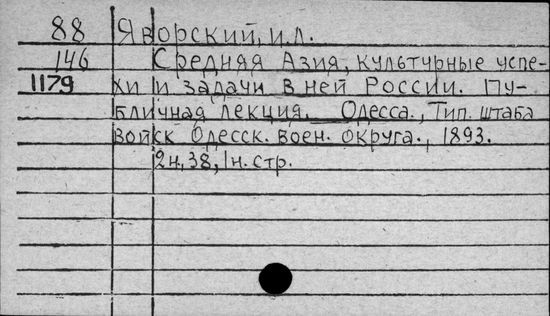 88 Яворский, И.Л.
146 Средняя Азия, культурные успе-
1179 хи и задачи в ней России. Пу-
бличная лекция. Одесса., Тип. штаба
войск Одесск. воен. округа., 1893.
2н, 38, 1н. стр.